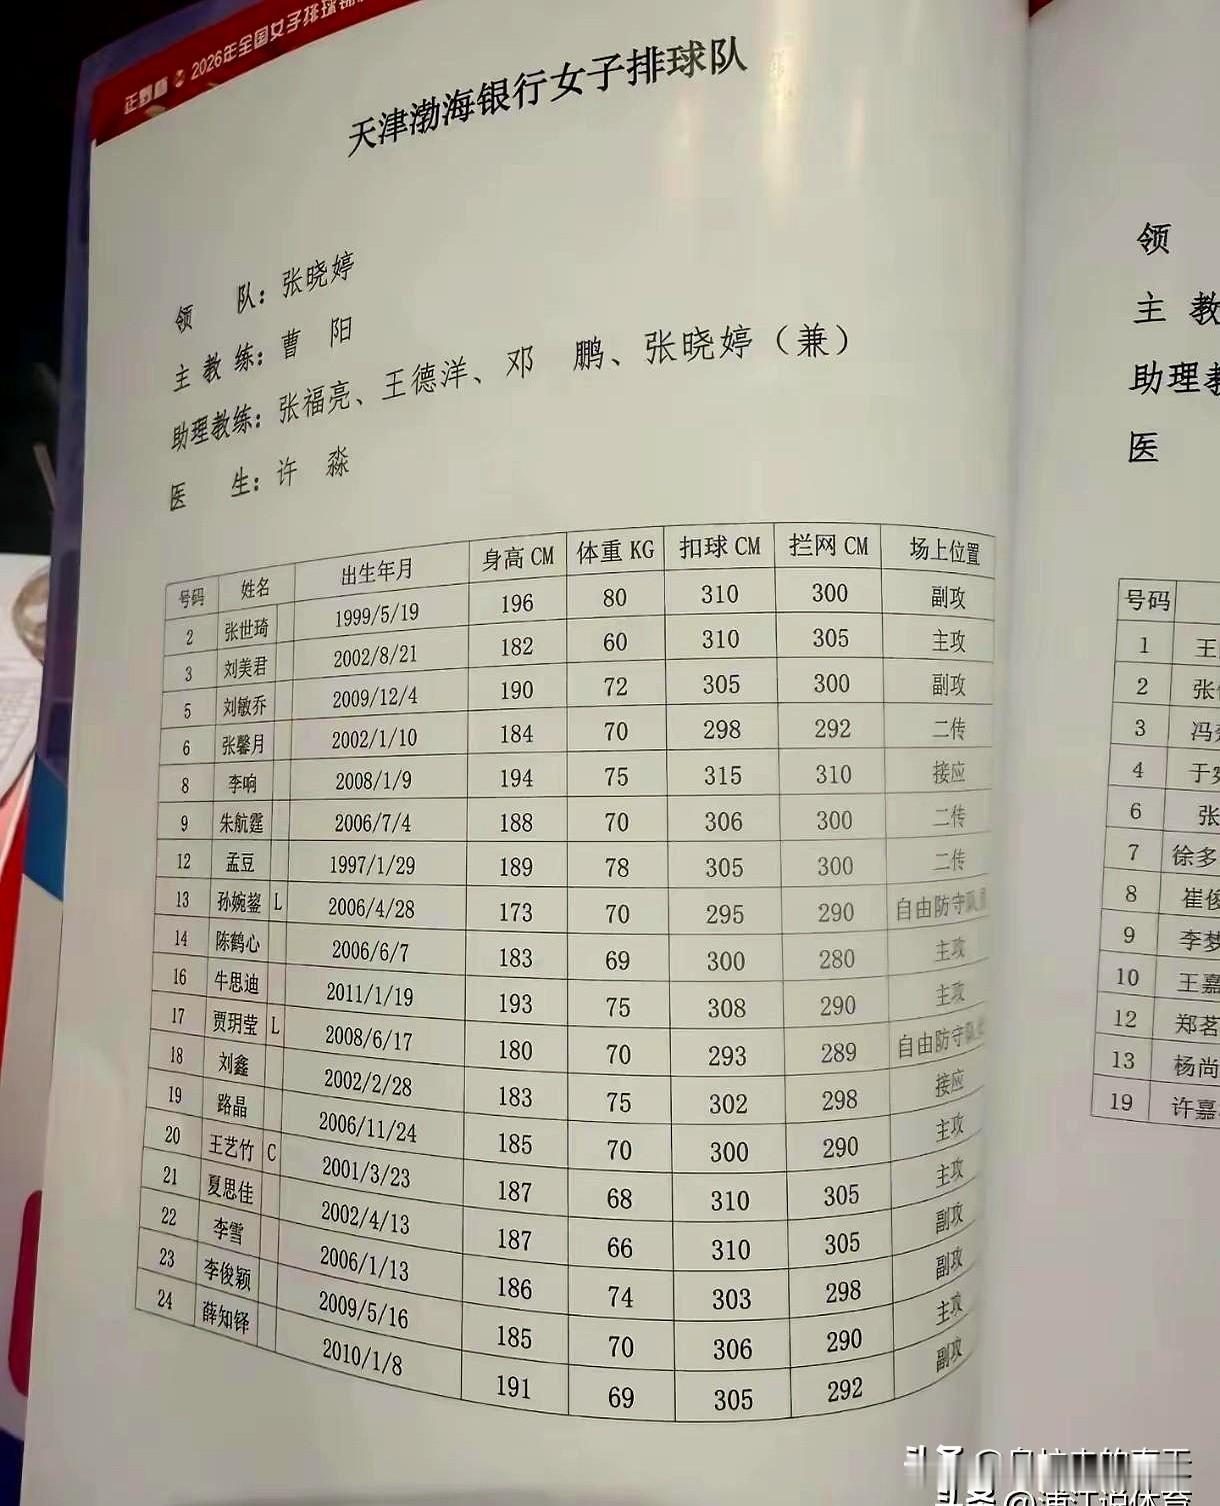 正野春 2026年全国女子排球锦
天津渤海银行女子排球队
领 队：张晓婷
主教练：曹 阳
助理教练：张福亮、王德洋、邓 鹏、张晓婷（兼）
医 生：许 淼
号码 姓名 出生年月 身高CM 体重KG 扣球CM 拦网CM 场上位置
2 张世琦 1999/5/19 196 80 310 300 副攻
3 刘美君 2002/8/21 182 60 310 305 主攻
5 刘敏乔 2009/12/4 190 72 305 300 副攻
6 张馨月 2002/1/10 184 70 298 292 二传
8 李响 2008/1/9 194 75 315 310 接应
9 朱航霆 2006/7/4 188 70 306 300 二传
12 孟豆 1997/1/29 189 78 305 300 二传
13 孙婉鋆 L 2006/4/28 173 70 295 290 自由防守队
14 陈鹤心 2006/6/7 183 69 300 280 主攻
16 牛思迪 2011/1/19 193 75 308 290 主攻
17 贾玥莹 L 2008/6/17 180 70 293 289 自由防守队
18 刘鑫 2002/2/28 183 75 302 298 接应
19 路晶 2006/11/24 185 70 300 290 主攻
20 王艺竹 C 2001/3/23 187 68 310 305 主攻
21 夏思佳 2002/4/13 187 66 310 305 副攻
22 李雪 2006/1/13 186 74 303 298 副攻
23 李俊颖 2009/5/16 185 70 306 290 主攻
24 薛知铎 2010/1/8 191 69 305 292 副攻
领
主 教
助理教
医
号码
1 王
2 张
3 冯
4 于
6 张
7 徐多
8 崔俊
9 李梦
10 王嘉
12 郑茗
13 杨尚
19 许嘉
头条 @浦江说体育